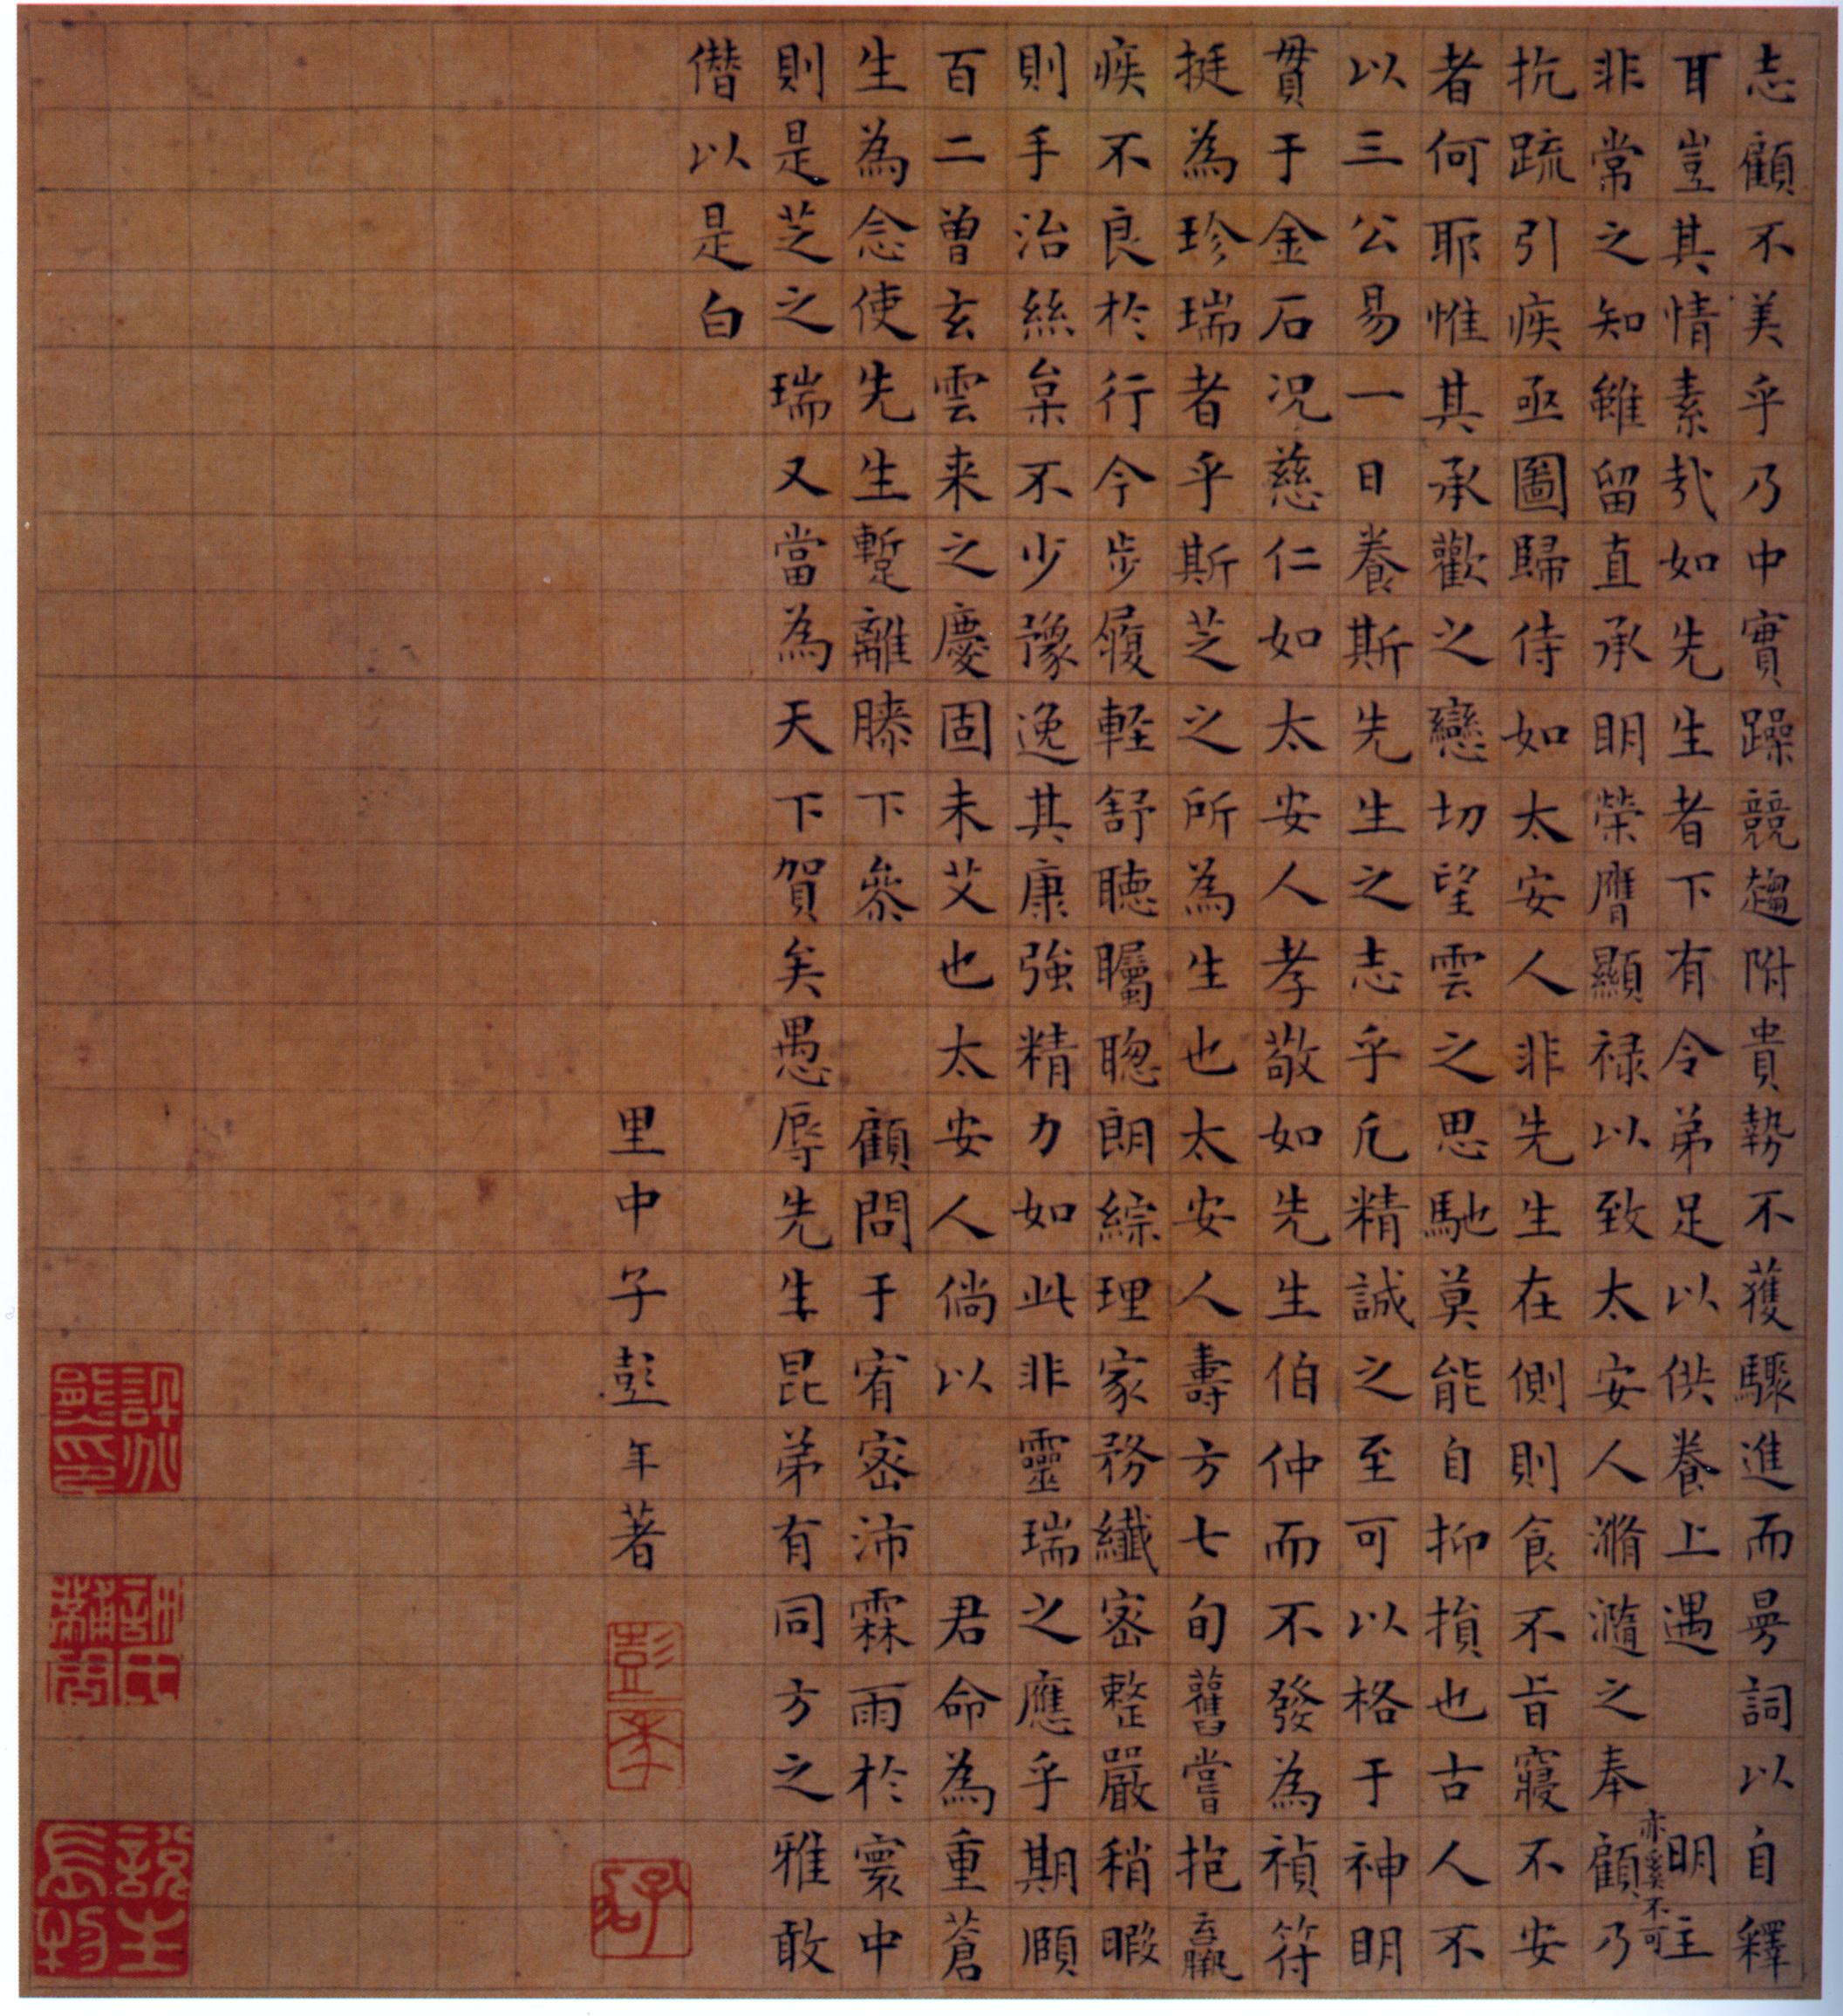 志顧不美乎乃中實躁競趨附貴勢不獲驟進而号詞以自釋
耳豈其情素哉如先生者下有令弟足以供養上遇明主
非常之知雖留直承明榮膺顯祿以致太安人滫瀡之奉顧乃
亦奚不可
抗疏引疾亟圖歸侍如太安人非先生在側則食不旨寢不安
者何耶惟其承歡之戀切望雲之思馳莫能自抑損也古人不
以三公易一日養斯先生之志乎凡精誠之至可以格于神明
貫于金石况慈仁如太安人孝敬如先生伯仲而不發為禎符
挺為珍瑞者乎斯芝之所為生也太安人壽方七旬舊嘗抱羸
疾不良於行今步履輕舒聽矚聰朗綜理家務纖密整嚴稍暇
則手治絲枲不少豫逸其康強精力如此非靈瑞之應乎期頤
百二曾玄雲来之慶固未艾也太安人倘以君命為重蒼
生為念使先生暫離膝下叅顧問于宥密沛霖雨於寰中
則是芝之瑞又當為天下賀矣愚辱先生昆弟有同方之雅敢
僭以是白
里中子彭年著
彭年